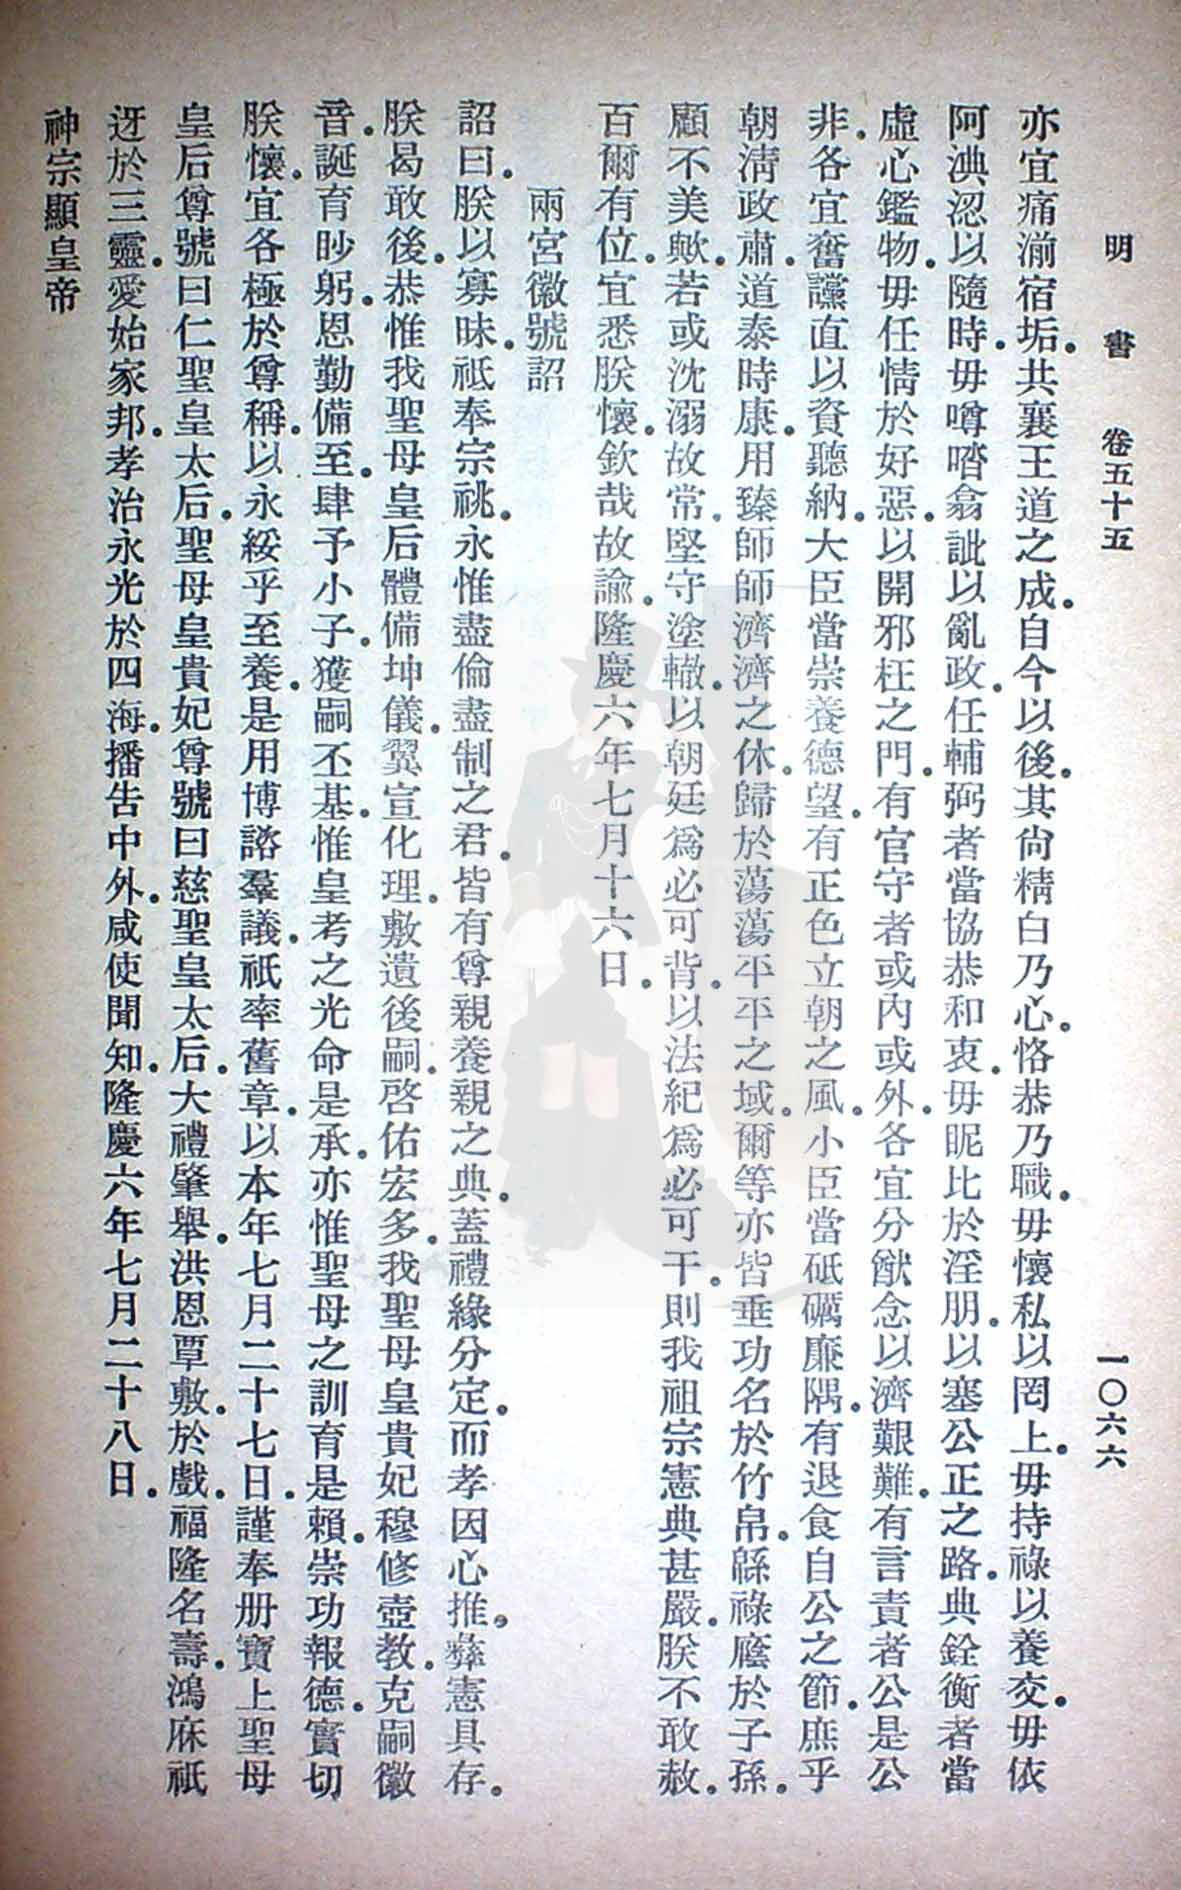 明 書 卷五十五 一〇六六
亦宜痛湔宿垢。共襄王道之成。自今以後。其尚精白乃心。恪恭乃職。毋懷私以罔上。毋持祿以養交。毋依
阿淟涊以隨時。毋噂喒翕訿以亂政。任輔弼者當協恭和衷。毋昵比於淫朋。以塞公正之路。典銓衡者當
虛心鑑物。毋任情於好惡。以開邪枉之門。有官守者或內或外。各宜分猷念以濟艱難。有言責者公是公
非。各宜奮讜直以資聽納。大臣當崇養德望。有正色立朝之風。小臣當砥礪廉隅。有退食自公之節。庶乎
朝淸政肅。道泰時康。用臻師師濟濟之休。歸於蕩蕩平平之域。爾等亦皆垂功名於竹帛。緜祿廕於子孫。
顧不美歟。若或沈溺故常。堅守塗轍。以朝廷爲必可背。以法紀爲必可干。則我祖宗憲典甚嚴。朕不敢赦。
百爾有位。宜悉朕懷。欽哉故諭。隆慶六年七月十六日。
兩宮徽號詔
詔曰。朕以寡昧。祇奉宗祧。永惟盡倫盡制之君。皆有尊親養親之典。蓋禮緣分定。而孝因心推。彝憲具存。
朕曷敢後。恭惟我聖母皇后體備坤儀。翼宣化理。敷遺後嗣。啓佑宏多。我聖母皇貴妃穆修壼教。克嗣徽
音。誕育眇躬。恩勤備至。肆予小子。獲嗣丕基。惟皇考之光命是承。亦惟聖母之訓育是賴。崇功報德。實切
朕懷。宜各極於尊稱。以永綏乎至養。是用博諮羣議。祇率舊章。以本年七月二十七日。謹奉册寶上聖母
皇后尊號曰仁聖皇太后。聖母皇貴妃尊號曰慈聖皇太后。大禮肇舉。洪恩覃敷。於戲。福隆名壽。鴻庥祇
迓於三靈。愛始家邦。孝治永光於四海。播告中外。咸使聞知。隆慶六年七月二十八日。
神宗顯皇帝